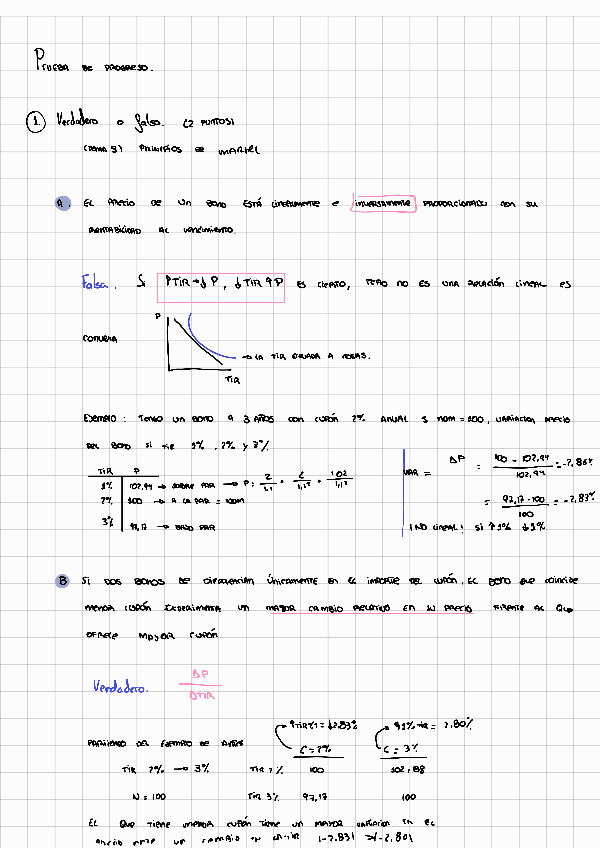 PRUEBA DE PROGRESO.
1. Verdadero o falso. (2 PUNTOS)
(TEMA 3) PRINCIPIOS DE MALKIEL
A. EL PRECIO DE UN BONO ESTÁ LINEALMENTE E INVERSAMENTE PROPORCIONADO CON SU
RENTABILIDAD AL VENCIMIENTO.
Falsa. Si ↑TIR→↓P, ↓TIR ↑P ES CIERTO, PERO NO ES UNA RELACIÓN LINEAL ES
CONVEXA
P
→ LA TIR
TIR
EJEMPLO: TENGO UN BONO A 3 AÑOS CON CUPÓN 2% ANUAL $ NOM = 100, VARIACION PRECIO
DEL BONO SI TIR 1%, 2% Y 3%
TIR P
1% 102,94 → SOBRE PAR → P:
2% 100 → A LA PAR = NOM
3% 97,17 → BAJO PAR
VAR = ΔP = 100 - 102,94 / 102,94 = -2,86%
= 97,17 - 100 / 100 = -2,83%
¡NO LINEAL! SI ↑1% ↓1%
B SI DOS BONOS SE DIFERENCIAN ÚNICAMENTE EN EL IMPORTE DEL CUPÓN, EL BONO QUE
MENOR CUPÓN EXPERIMENTA UN MAYOR CAMBIO RELATIVO EN SU PRECIO FRENTE AL QUE
OFRECE MAYOR CUPÓN
Verdadero. ΔP / ΔTIR
↓2,83% ↑1% TIR = 2,80%
PARTIENDO DEL EJEMPLO DE ANTES C = 2% C = 3%
TIR 2% → 3% TIR 2% 100 102,88
N = 100 TIR 3% 97,17 100
EL QUE TIENE MENOR CUPÓN TIENE UN MAYOR VARIACION EN EL
PRECIO ANTE UN CAMBIO EN